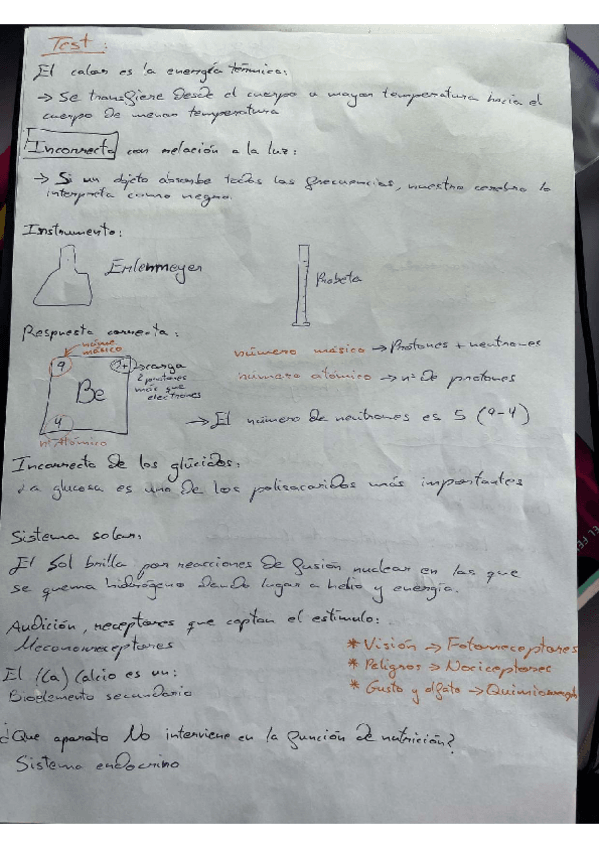 Test:
El calor es la energía térmica:
→ Se transfiere desde el cuerpo a mayor temperatura hacia el
cuerpo de menor temperatura
Incorrecta con relación a la luz:
→ Si un objeto absorbe todas las frecuencias, nuestro cerebro lo
interpreta como negro.
Instrumento:
Erlenmeyer
Probeta
Respuesta correcta:
número másico → Protones + neutrones
número
másico
9
2+ → carga
2 protones
más que
electrones
Be
número atómico → nº de protones
4
nº Atómico
→ El número de neutrones es 5 (9-4)
Incorrecto de los glúcidos:
La glucosa es uno de los polisacáridos más importantes
Sistema solar:
El Sol brilla por reacciones de fusión nuclear en las que
se quema hidrógeno dando lugar a helio y energía.
Audición, receptores que captan el estímulo:
Meconorreceptores
* Visión → Fotorreceptores
* Peligros → Nociceptores
* Gusto y olfato →
El (Ca) Calcio es un:
Bioelemento secundario
¿Que aparato No interviene en la función de nutrición?
Sistema endocrino